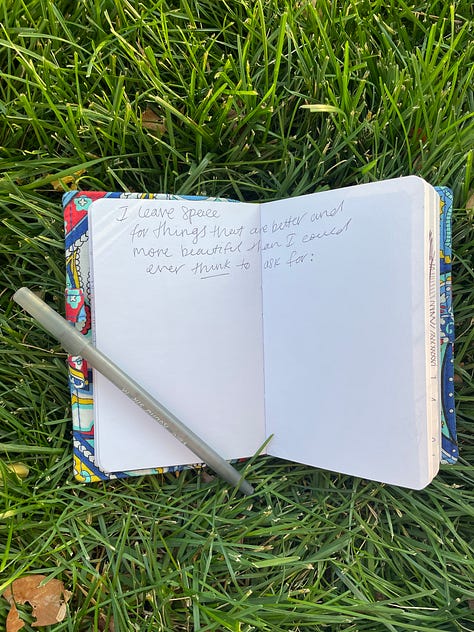 I leave space
for things that are better and
more beautiful than I could
ever think to ask for: